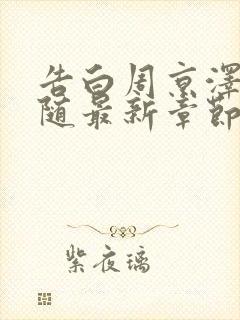 告白周京澤
随最新章節
紫夜璃